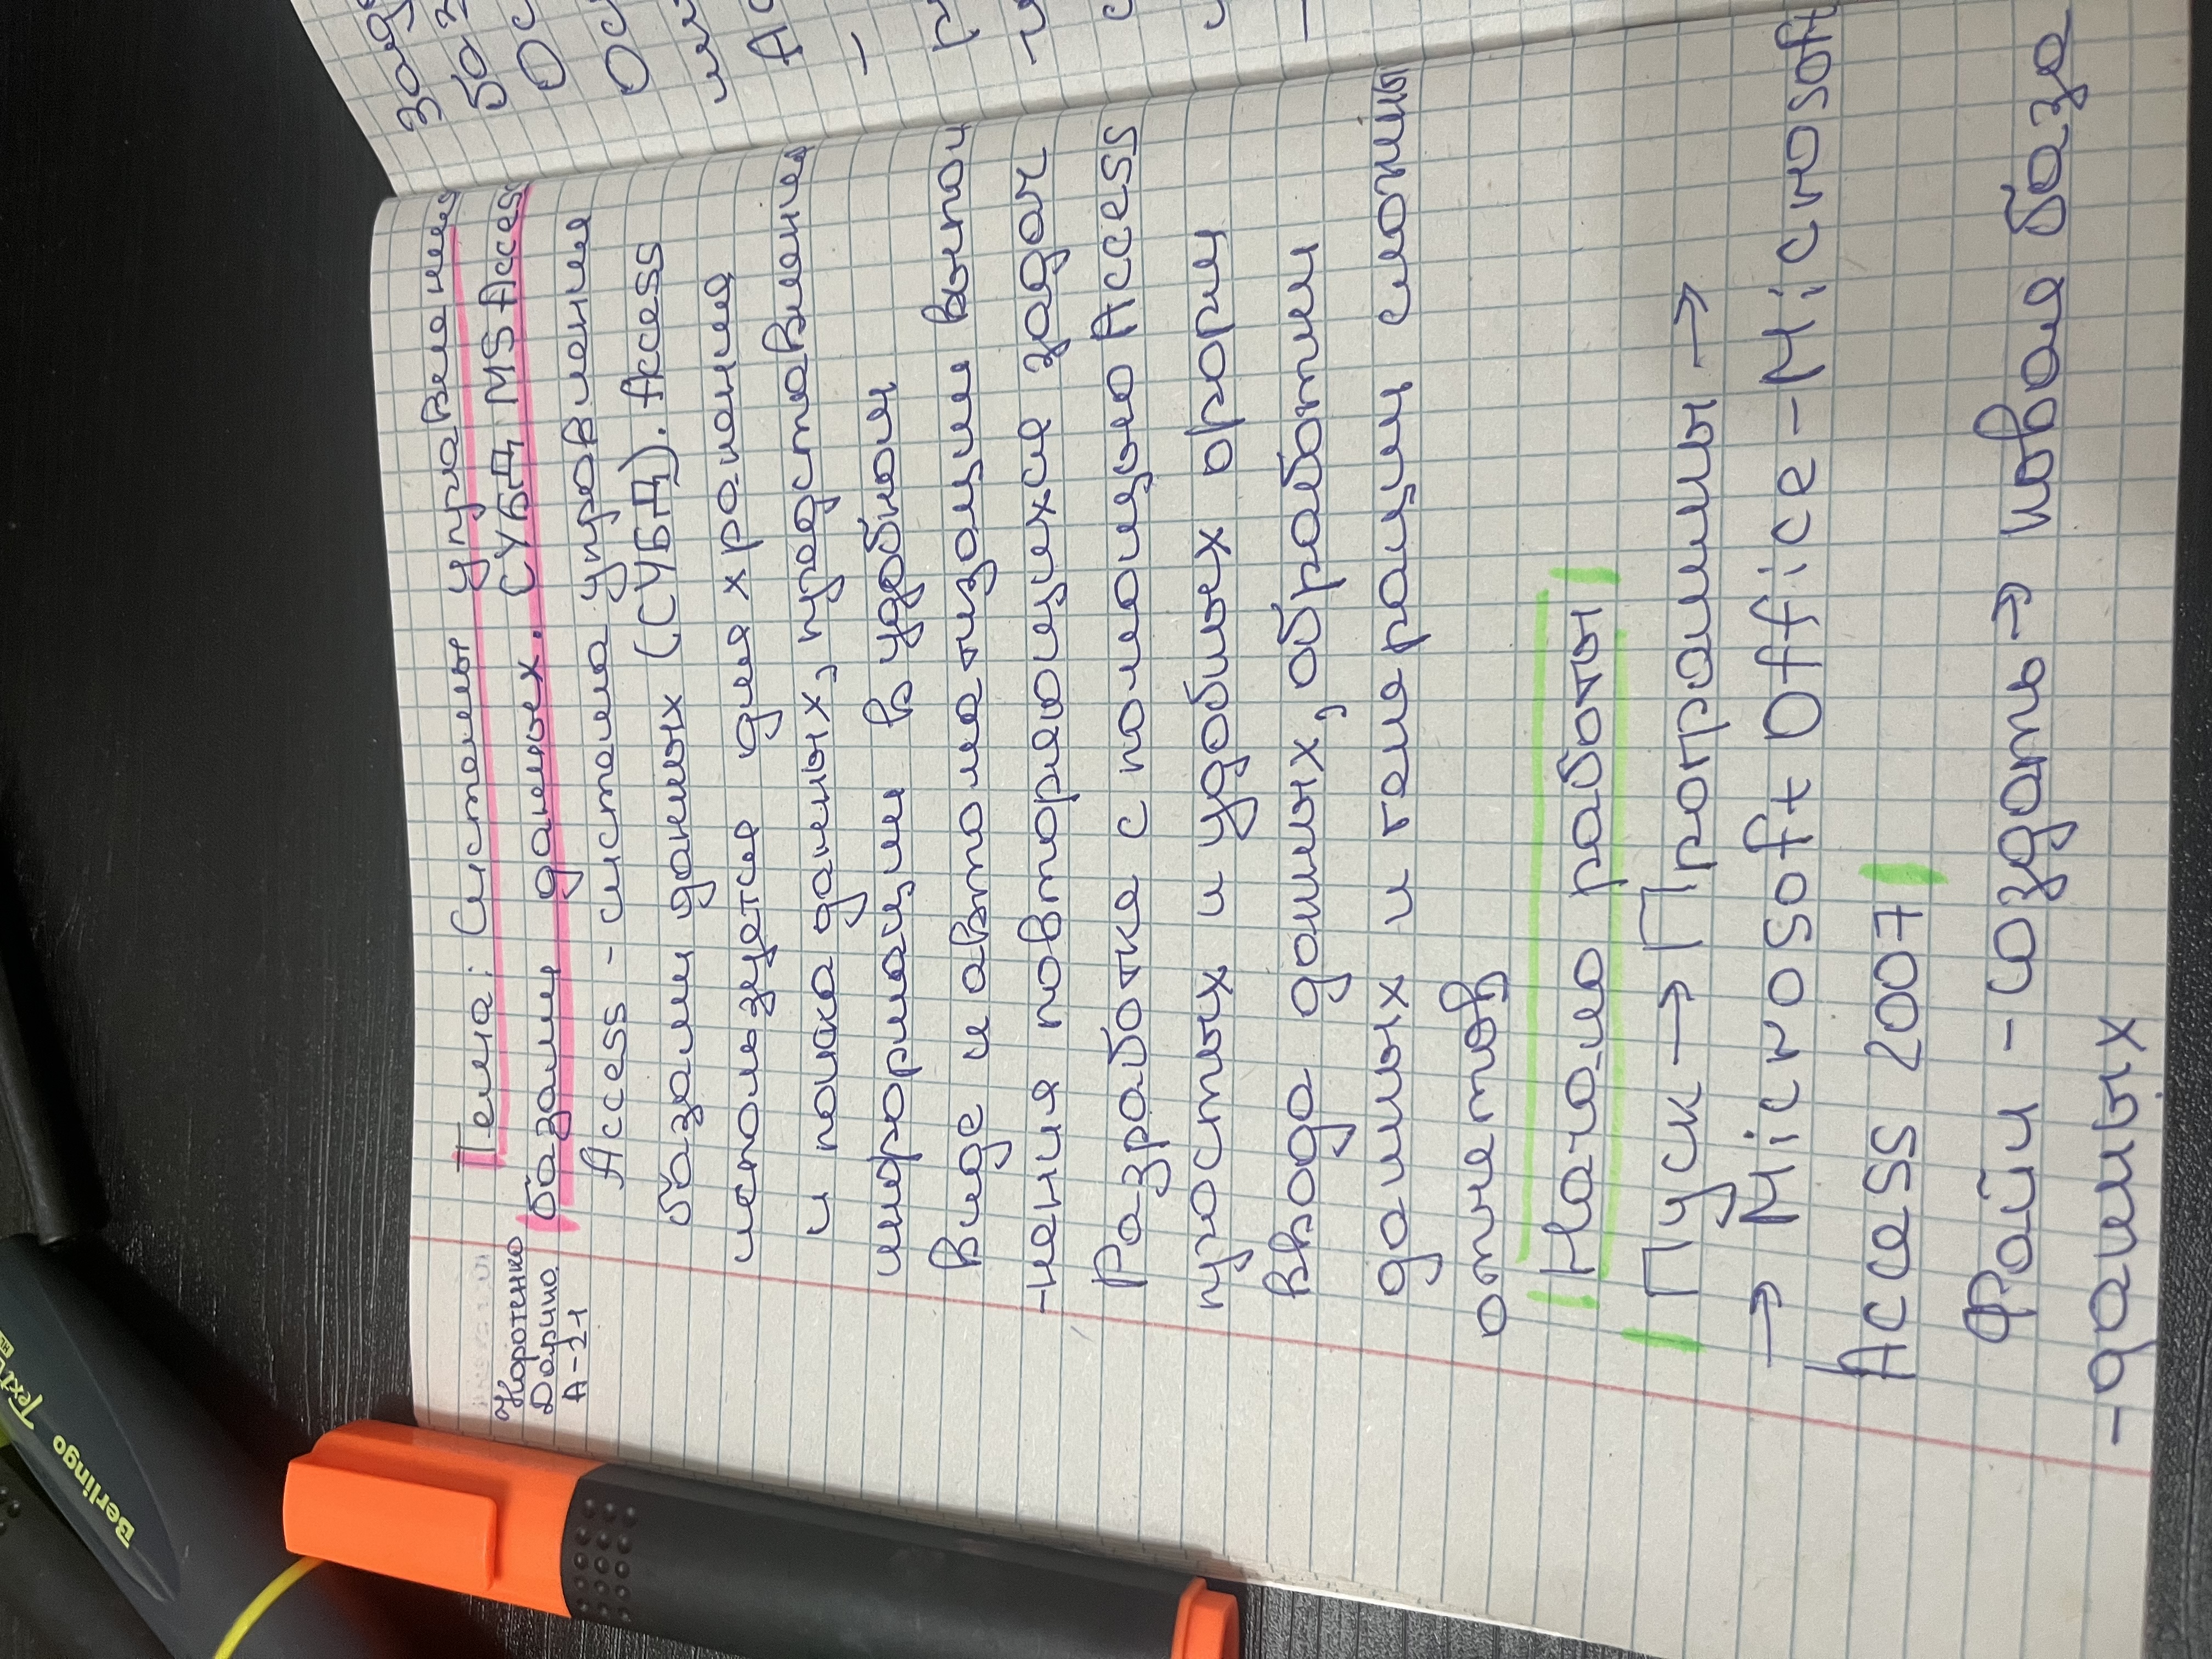 Коротенко
Дарина
А-21
Тема: Системы управления
базами данных. СУБД MS Access
Access - система управления
базами данных (СУБД). Access
используется для хранения
и поиска данных, представления
информации в удобном
виде и автоматизации выпол
-нения повторяющихся задач
Разработка с помощью Access
простых и удобных форм
ввода данных, обработки
данных и генерации сложных
отчетов
Начало работы
Пуск → Программы →
→ Microsoft Office - Microsoft
Access 2007
Файл - создать → новая база
- данных
Berlingo